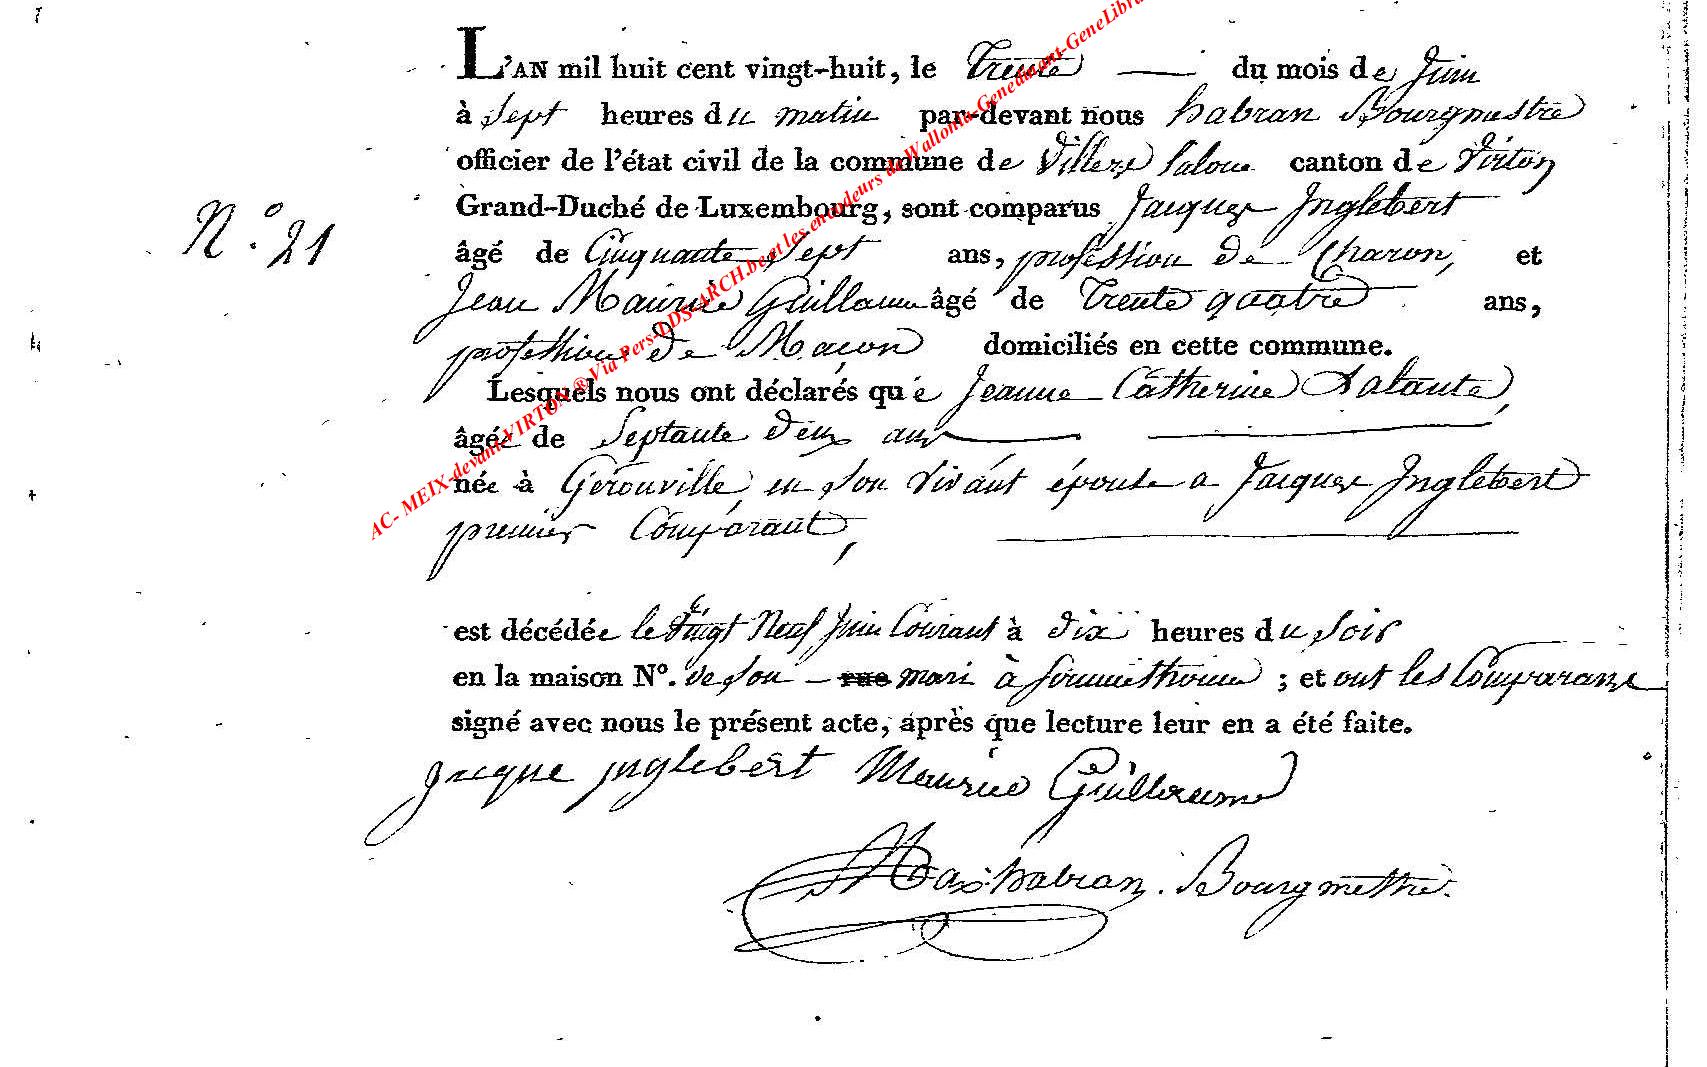 L'AN mil huit cent vingt-huit, le Trente du mois de Juin
à Sept heures du matin par-devant nous habran Bourgmestre
officier de l'état civil de la commune de Villers Laloue canton de Virton
Grand-Duché de Luxembourg, sont comparus Jacques Inglebert
N.° 21
âgé de Cinquante Sept ans, profession de Charon, et
Jean Maurice Guillaume âgé de Trente quatre ans,
profession de Maçon domiciliés en cette commune.
Lesquels nous ont déclarés que Jeanne Catherine Lalante,
âgée de Septante deux ans
née à Gérouville, en son vivant épouse a Jacques Inglebert
premier Comparant,
est décédée le Vingt Neuf Juin Courant à dix heures du soir
en la maison N°. de son rue mari à ; et ont les Comparans
signé avec nous le présent acte, après que lecture leur en a été faite.
Jacque Inglebert Maurice Guillaume
habran. Bourgmestre.
AC- MEIX-devant-VIRTON ® Via Pers-LDS-ARCH.be et les encodeurs de Wallonia-Genedinant-GeneLibra